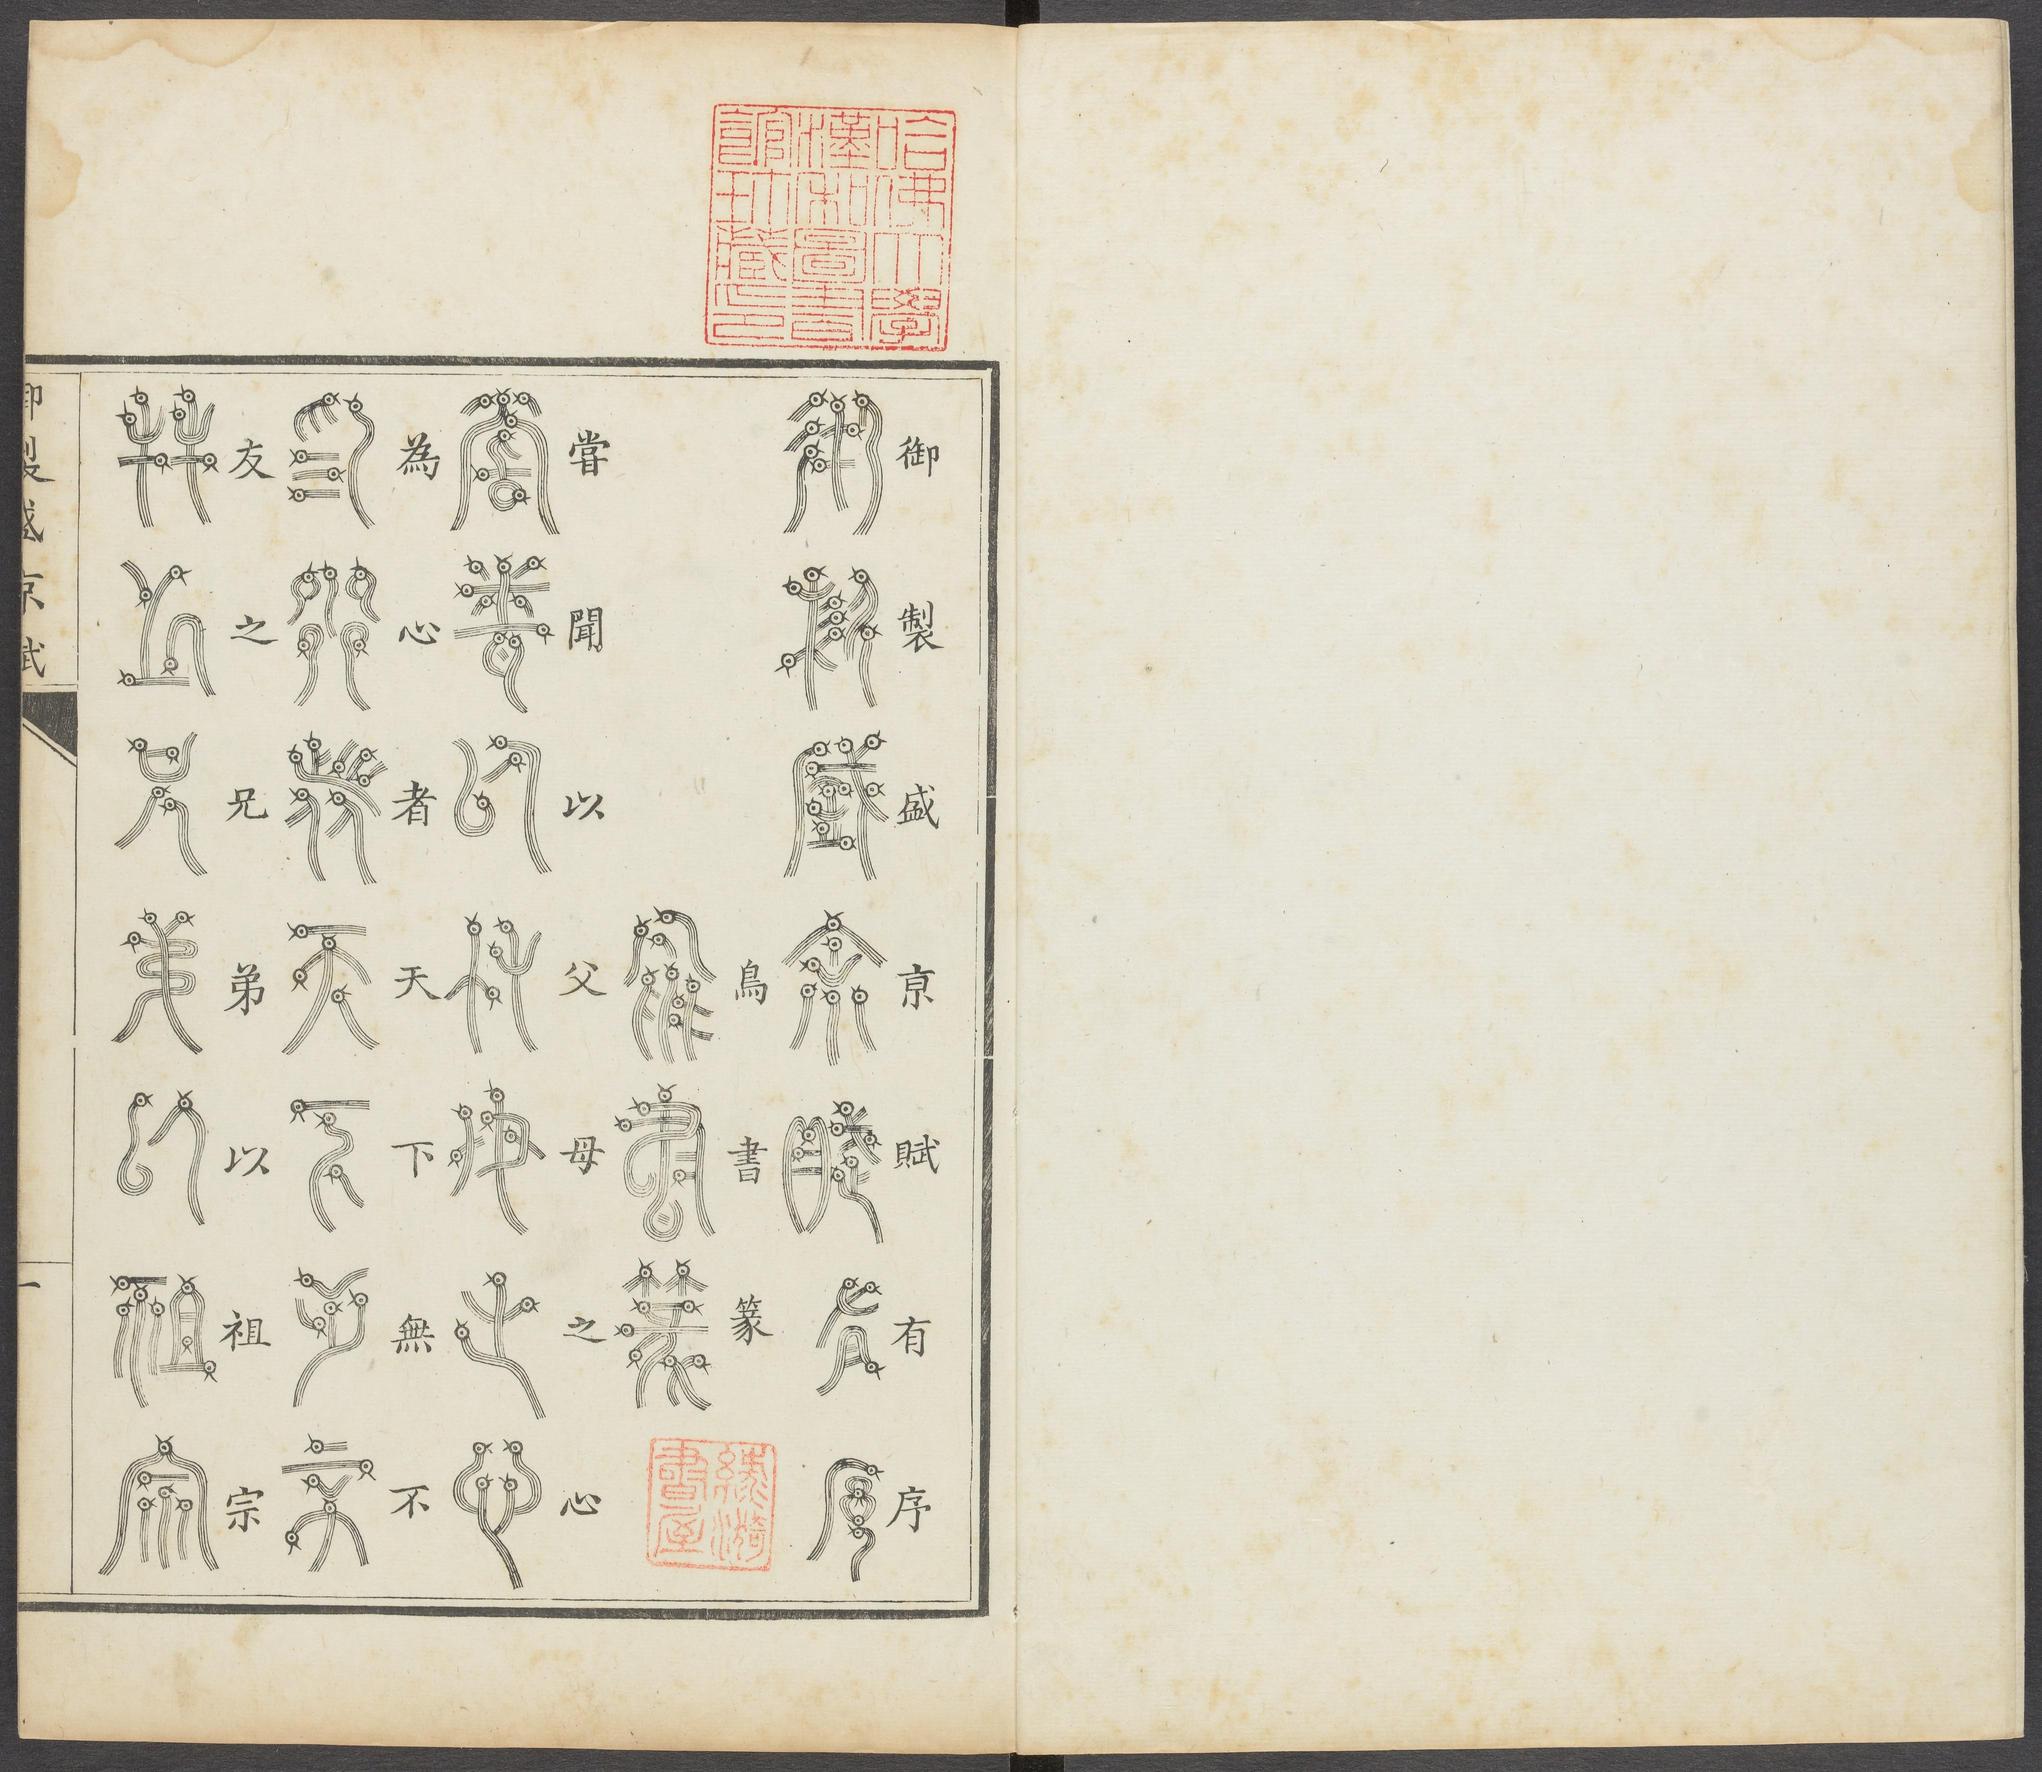 哈佛大學
漢和圖書
館珍藏印
御製盛亰賦有序
鳥書篆
漪
書屋
嘗聞以父母之心
為心者天下無不
友之兄弟以祖宗
御製盛京賦
一